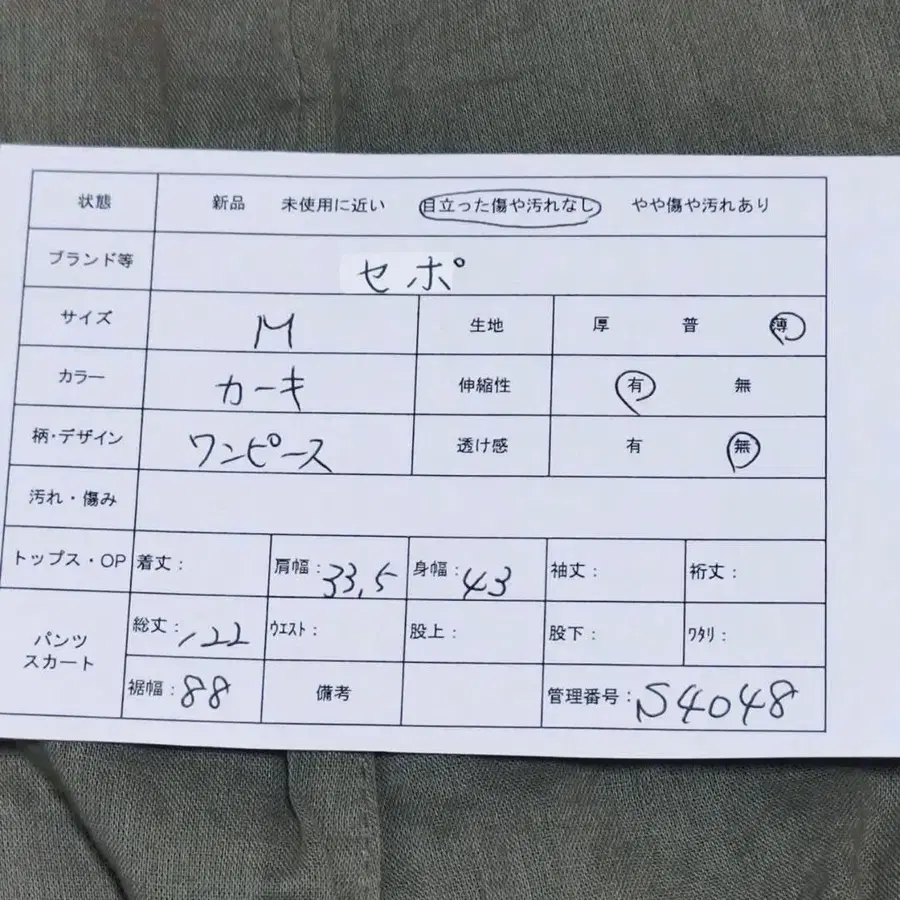 状態 新品 未使用に近い 目立った傷や汚れなし やや傷や汚れあり
ブランド等 セポ
サイズ M 生地 厚 普 薄
カラー カーキ 伸縮性 有 無
柄・デザイン ワンピース 透け感 有 無
汚れ・傷み
トップス・OP 着丈: 肩幅:33.5 身幅:43 袖丈: 裄丈:
パンツ
スカート
総丈:122 ウエスト: 股上: 股下: ワタリ:
裾幅:88 備考 管理番号:S4048